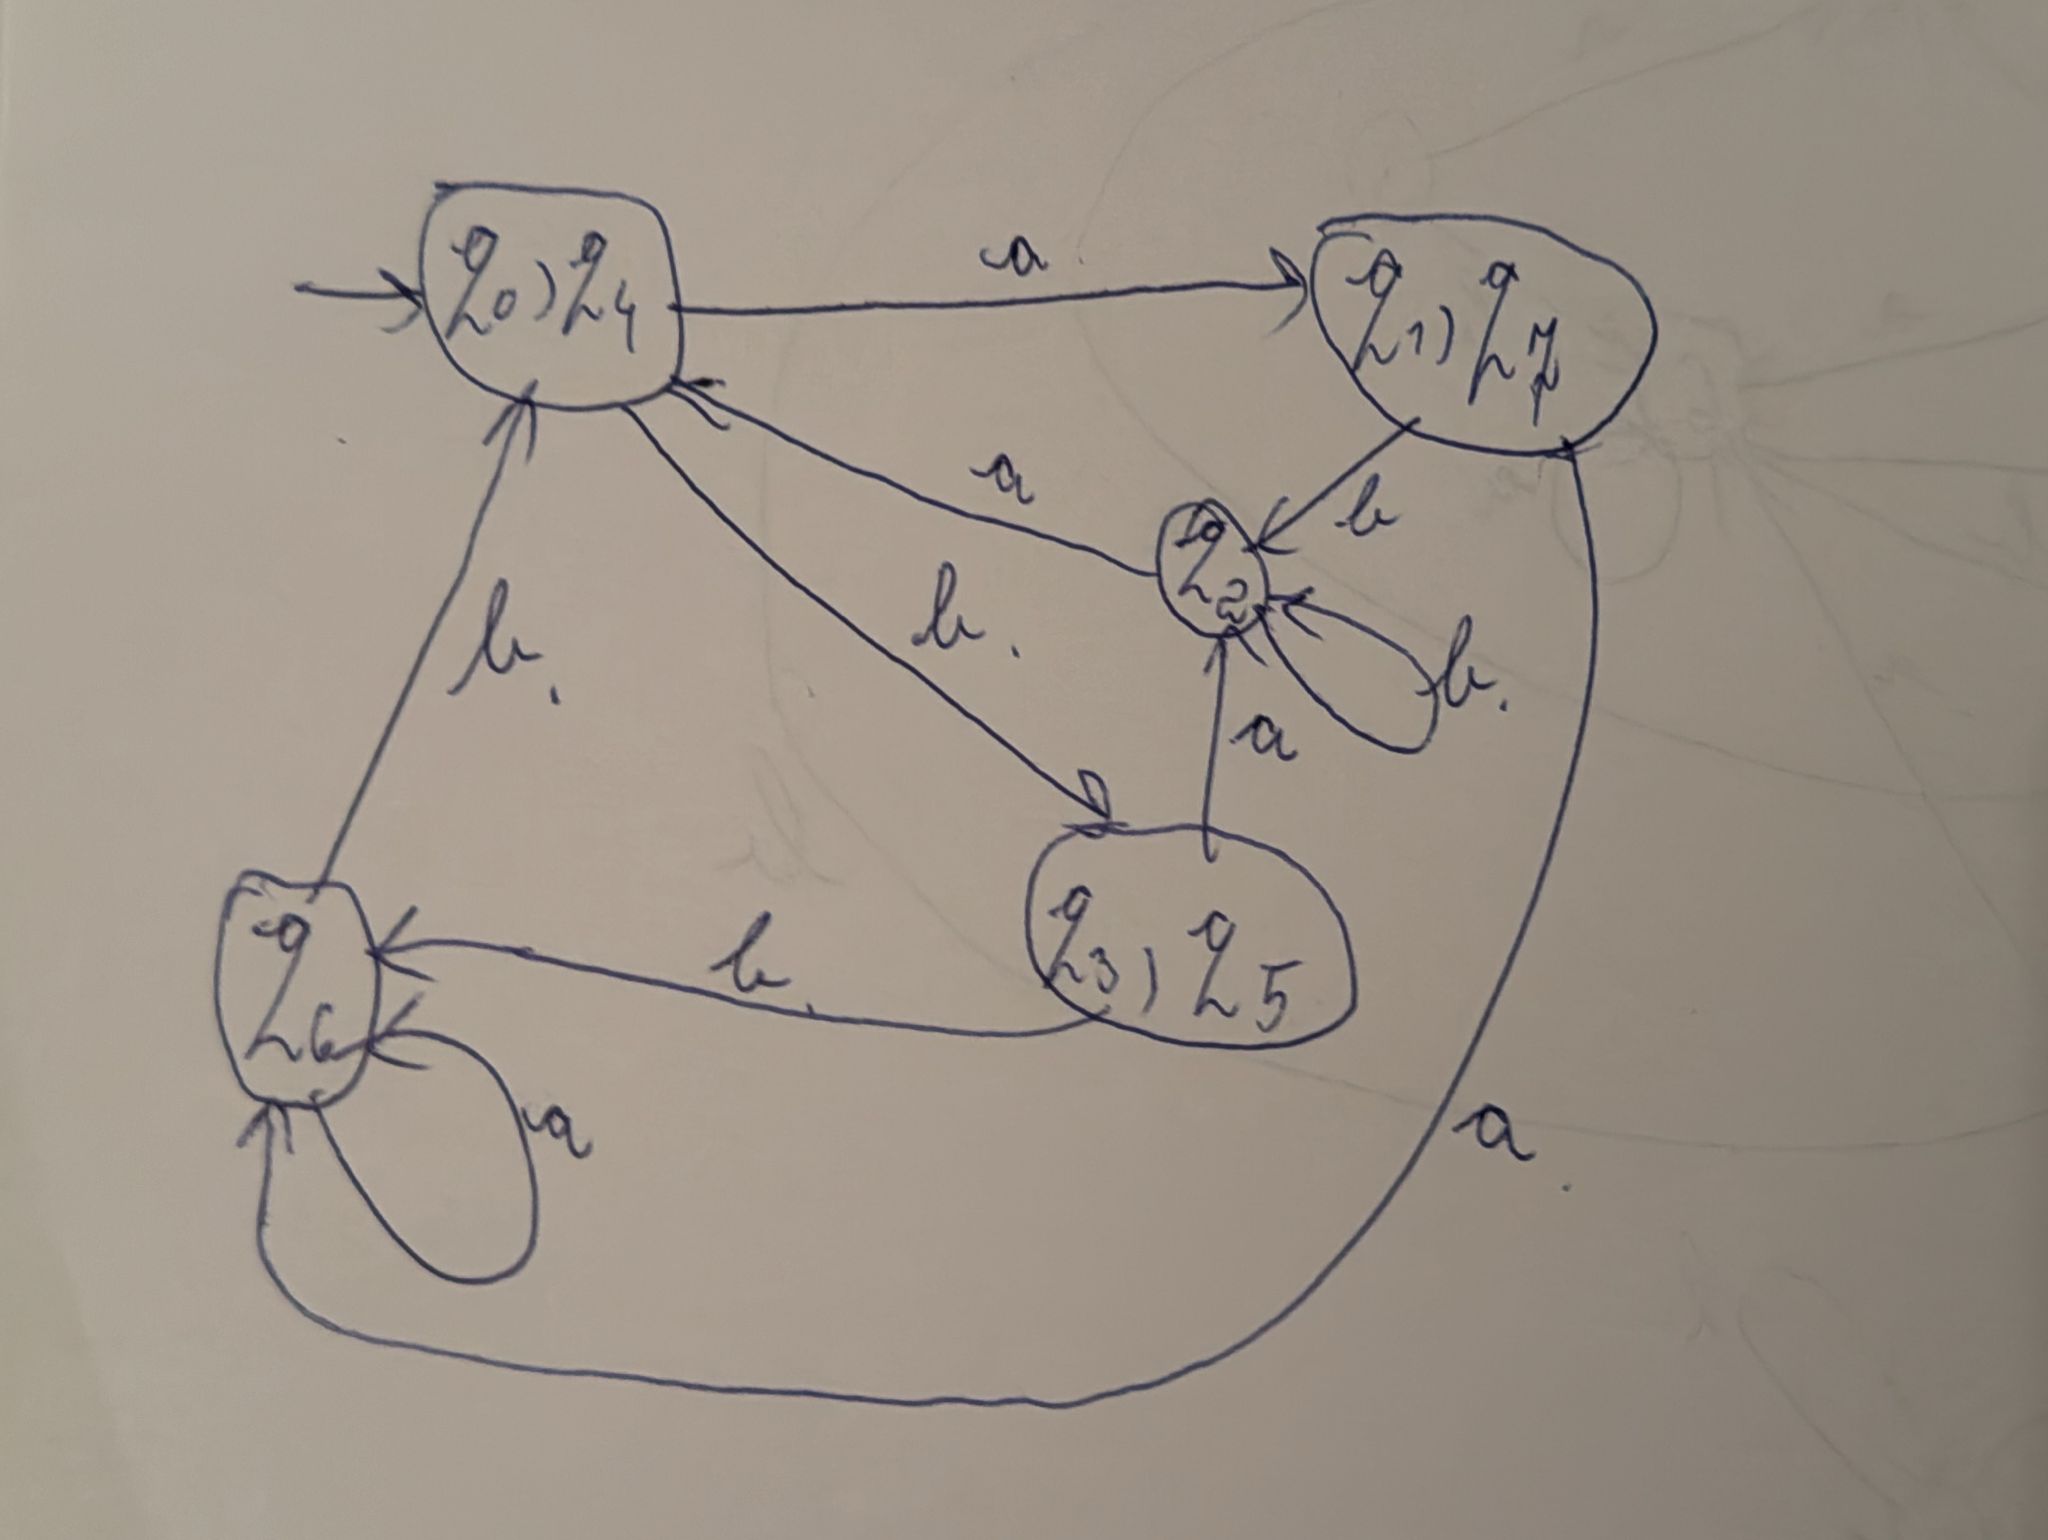 q0, q4
a
q1, q7
a
b
q2
b.
b.
b.
a
q3, q5
q6
b.
a
a.